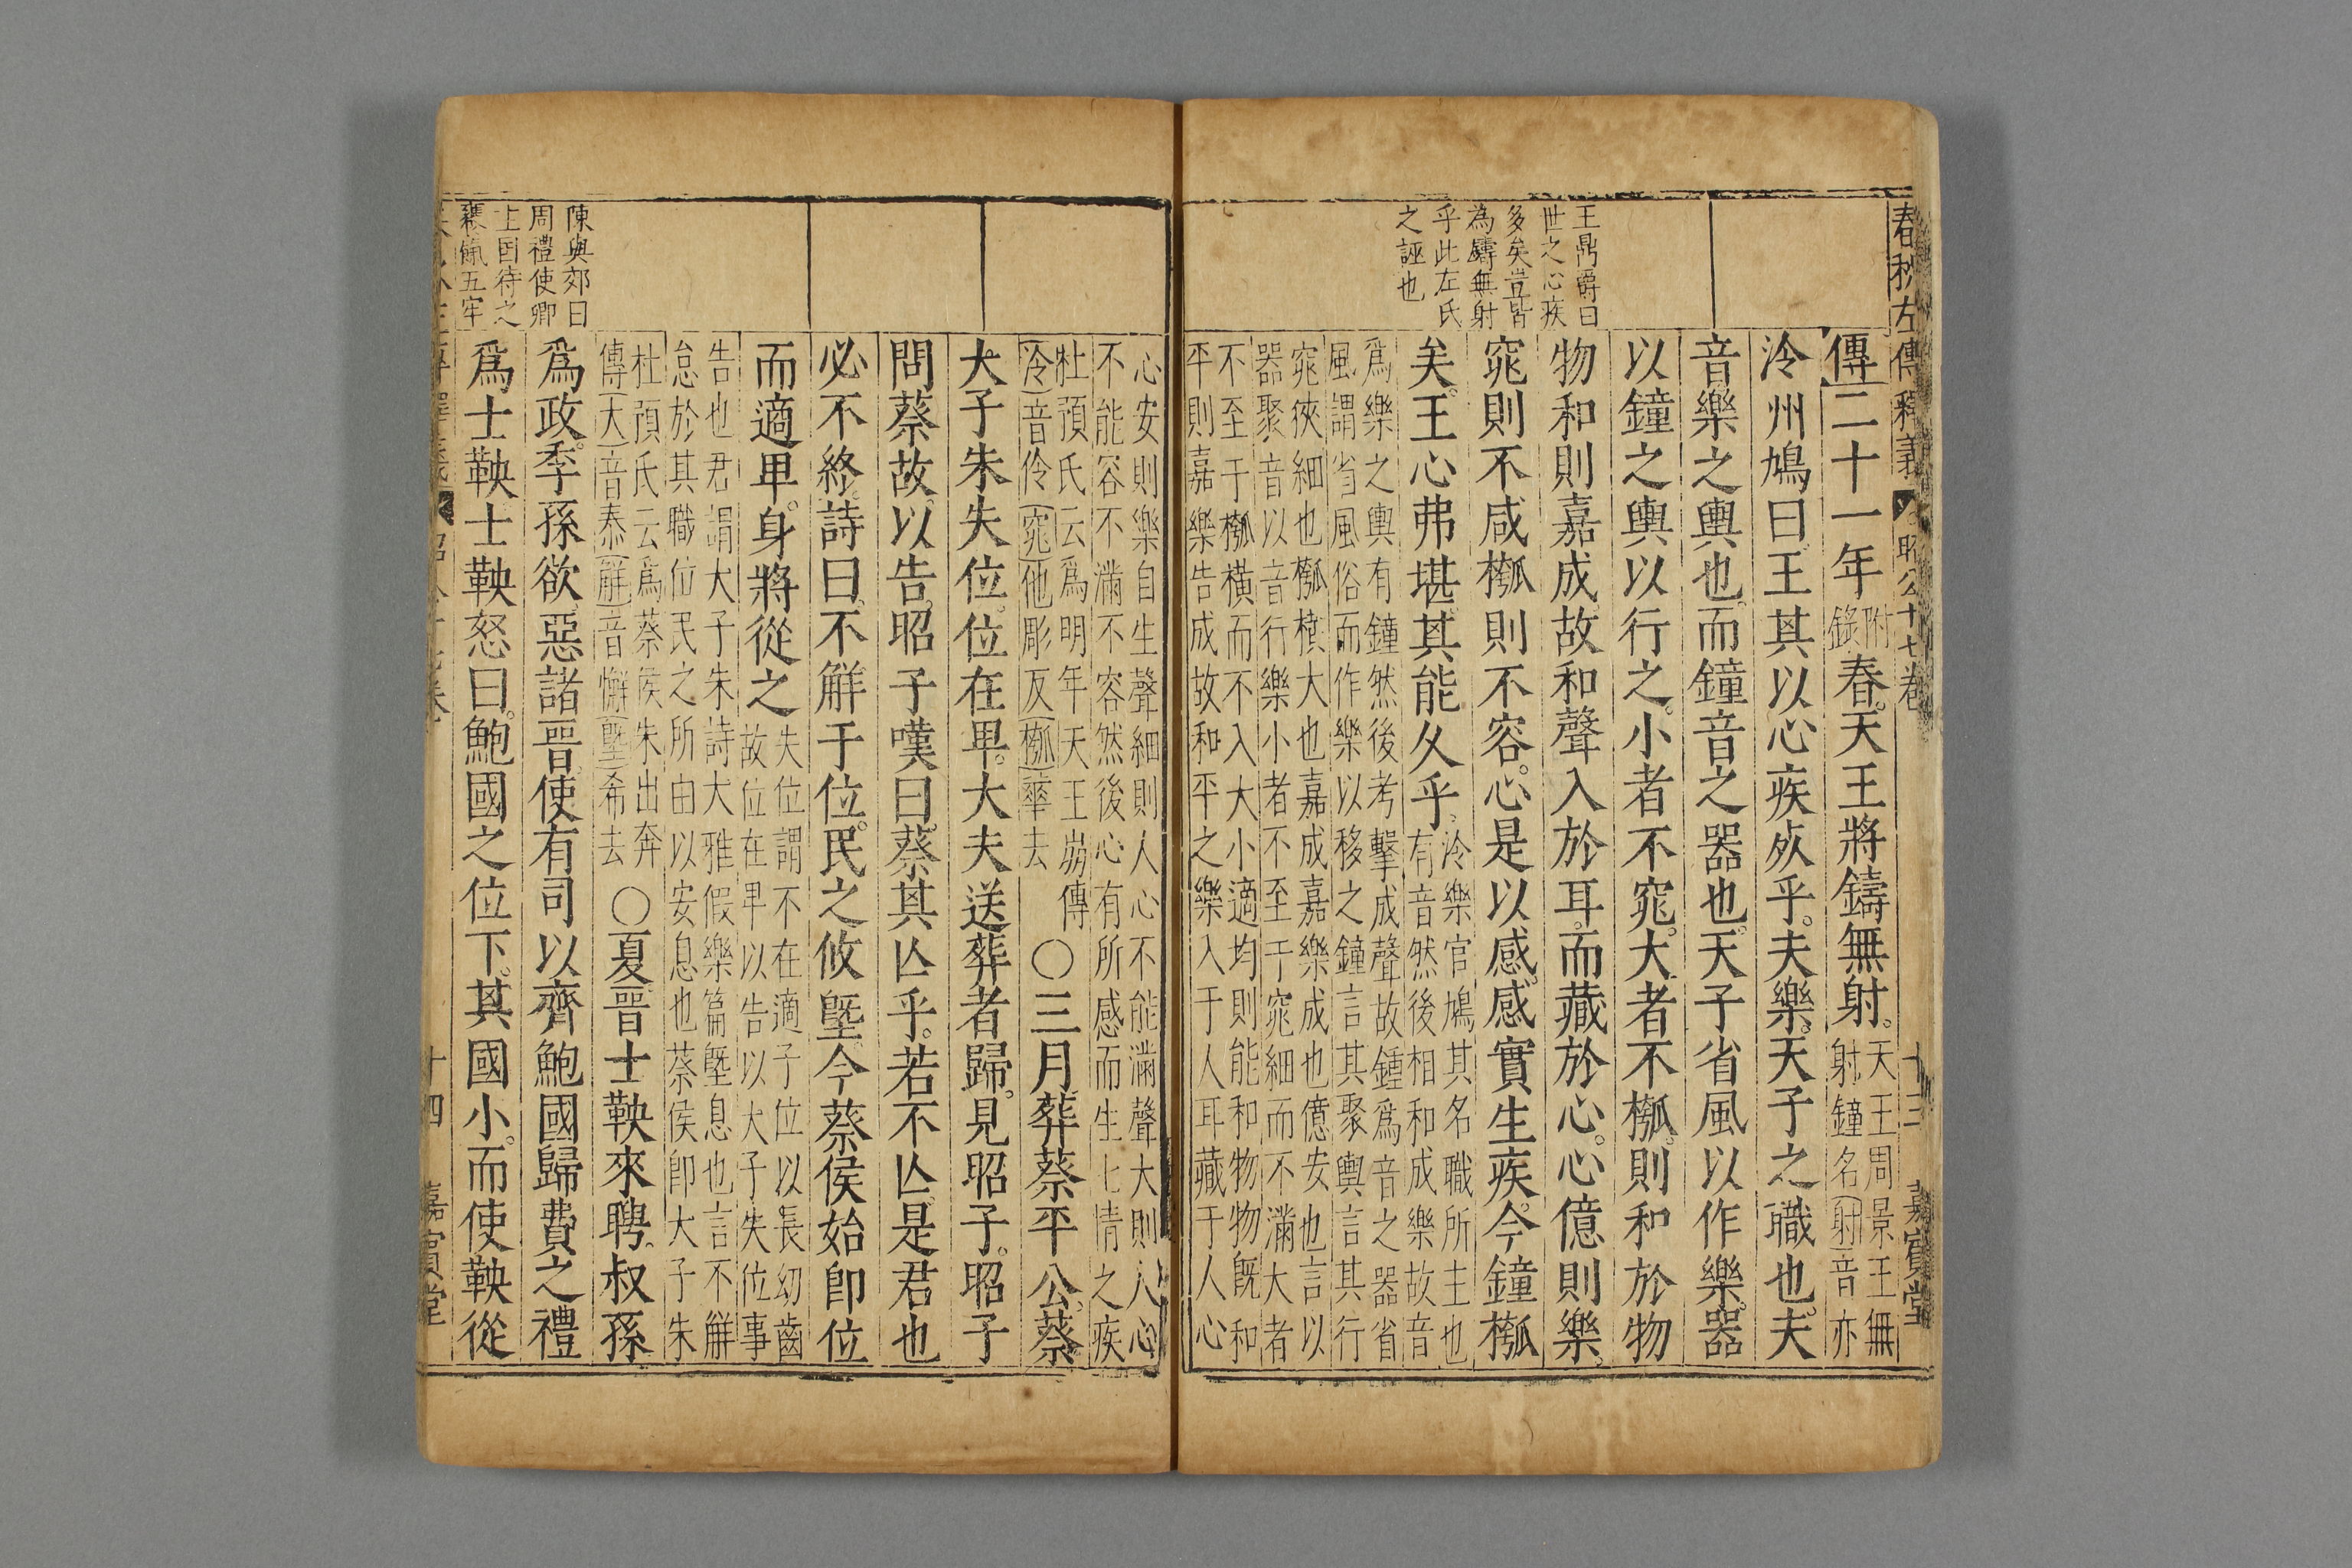 春秋左傳釋義
昭公十七卷
十三
嘉賓堂
王鼎爵曰
世之心疾
多矣豈皆
為鑄無射
乎此左氏
之誣也
傳二十一年附錄春。天王將鑄無射。天王周景王無射鐘名射音亦
泠州鳩曰。王其以心疾死乎。夫樂。天子之職也。夫
音樂之輿也。而鐘音之器也。天子省風以作樂。器
以鐘之。輿以行之。小者不窕。大者不槬。則和於物
物和則嘉成。故和聲入於耳。而藏於心。心億則樂。
窕則不咸。槬則不容。心是以感。感實生疾。今鐘槬
矣。王心弗堪。其能久乎。泠樂官鳩其名職所主也有音然後相和成樂故音
爲樂之輿有鐘然後考擊成聲故鍾爲音之器省
風謂省風俗而作樂以移之鐘言其聚輿言其行
窕狹細也槬橫大也嘉成嘉樂成也億安也言以
器聚音以音行樂小者不至于窕細而不滿大者
不至于槬橫而不入大小適均則能和物物既和
平則嘉樂告成故和平之樂入于人耳藏于人心
心安則樂自生聲細則人心不能滿聲大則人心
不能容不滿不容然後心有所感而生七情之疾
杜預氏云爲明年天王崩傳
泠音伶窕他彫反槬華去
○三月葬蔡平公。蔡
大子朱失位。位在卑。大夫送葬者歸。見昭子。昭子
問蔡故。以告。昭子嘆曰。蔡其亾乎。若不亾。是君也
必不終。詩曰。不解于位。民之攸墍。今蔡侯始即位
而適卑。身將從之失位謂不在適子位以長幼齒故位在卑以告以大子失位事
告也君謂大子朱詩大雅假樂篇墍息也言不解
怠於其職位民之所由以安息也蔡侯即大子朱
杜預氏云爲蔡侯朱出奔
傳大音泰解音懈墍希去
○夏晉士鞅來聘。叔孫
爲政。季孫欲惡諸晉。使有司以齊鮑國歸費之禮
爲士鞅。士鞅怒曰。鮑國之位下。其國小。而使鞅從
陳與郊曰
周禮使卿
上國待之
饔餼五牢
十四
嘉賓堂